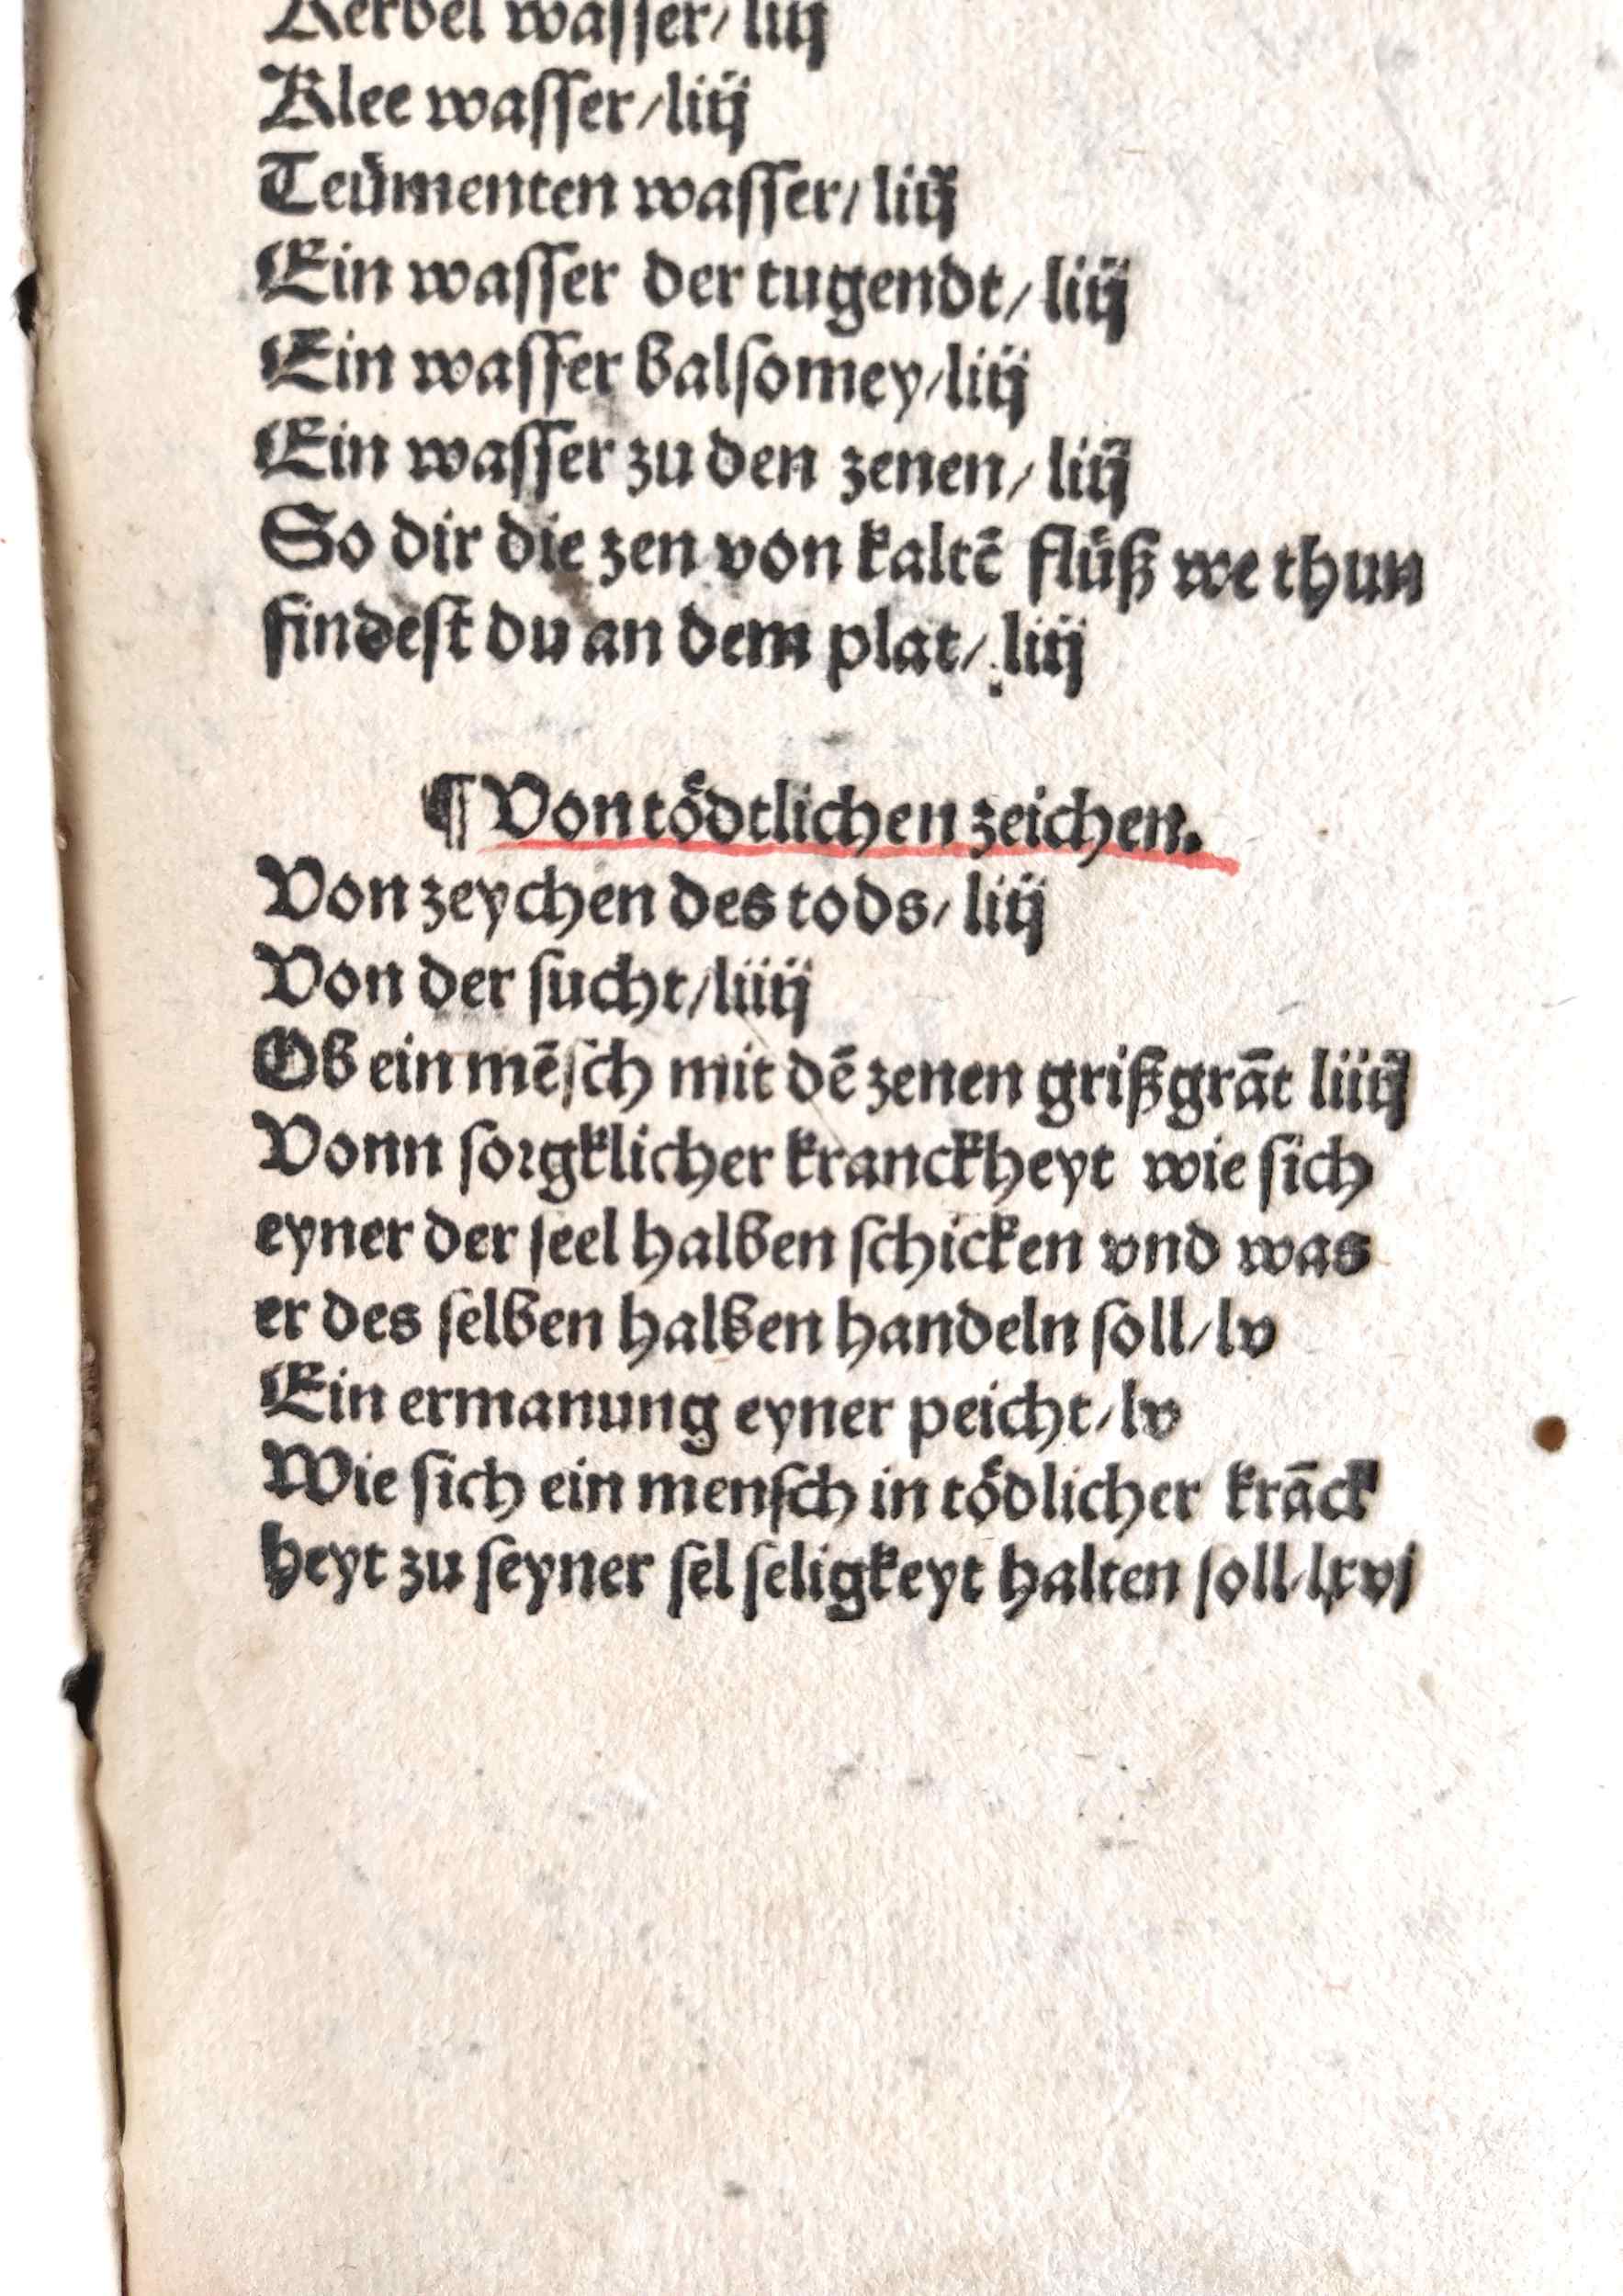 Kerbel waſſer/ liij
Klee waſſer/liij
Teümenten waſſer/ liij
Ein waſſer der tugendt/ liij
Ein waſſer balſomey/liij
Ein waſſer zu den zenen/ liij
So dir die zen von kaltẽ flüß we thun
findeſt du an dem plat/ liij
¶ Von toͤdtlichen zeichen.
Von zeychen des tods/ liij
Von der ſucht/liiij
Ob ein mẽſch mit dẽ zenen grißgrãt liiij
Vonn ſorgklicher kranckheyt wie ſich
eyner der ſeel halben ſchicken vnd was
er des ſelben halben handeln ſoll/lv
Ein ermanung eyner peicht/lv
Wie ſich ein menſch in toͤdlicher krãck
heyt zu ſeyner ſel ſeligkeyt halten ſoll/lxvj